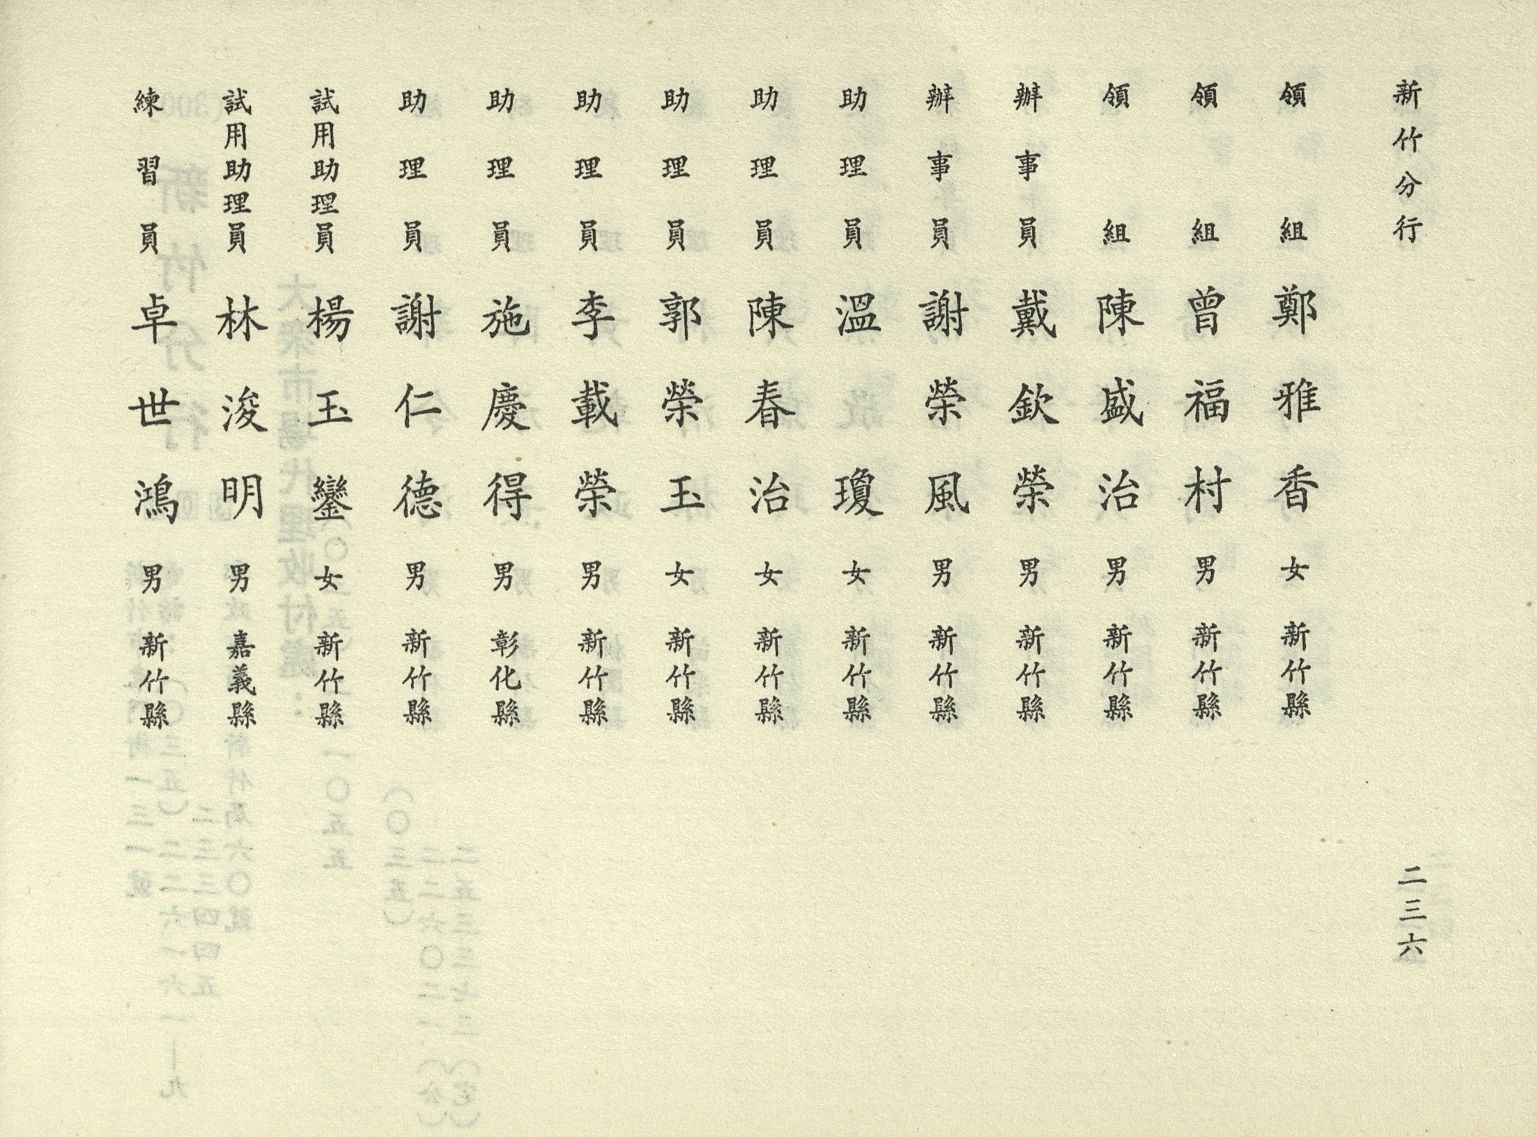 新竹分行
領組 鄭雅香 女 新竹縣
領組 曾福村 男 新竹縣
領組 陳盛治 男 新竹縣
辦事員 戴欽榮 男 新竹縣
辦事員 謝榮風 男 新竹縣
助理員 溫瓊 女 新竹縣
助理員 陳春治 女 新竹縣
助理員 郭榮玉 女 新竹縣
助理員 李載榮 男 新竹縣
助理員 施慶得 男 彰化縣
助理員 謝仁德 男 新竹縣
試用助理員 楊玉鑾 女 新竹縣
試用助理員 林浚明 男 嘉義縣
練習員 卓世鴻 男 新竹縣
二三六